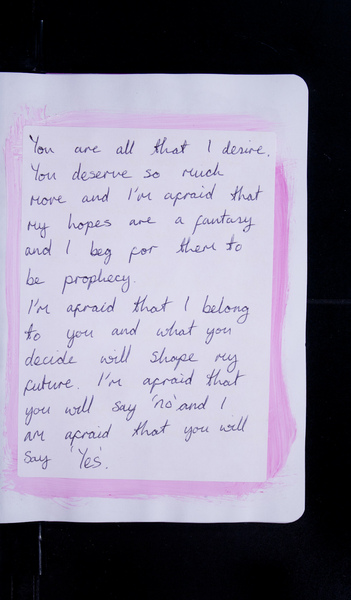 You are all that I desire.
You deserve so much
more and I'm afraid that
my hopes are a fantasy
and I beg for them to
be prophecy.
I'm afraid that I belong
to you and what you
decide will shape my
future. I'm afraid that
you will say 'no' and I
am afraid that you will
say 'Yes'.